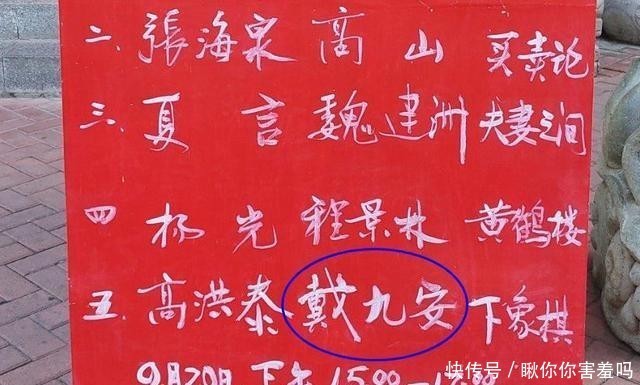 二、張海泉 高山 买卖论
三、夏言 魏建洲 夫妻之间
四 杨光 程景林 黄鹤楼
五、高洪泰 戴九安 下象棋
9月20日下午15:00
快传号/瞅你你害羞吗